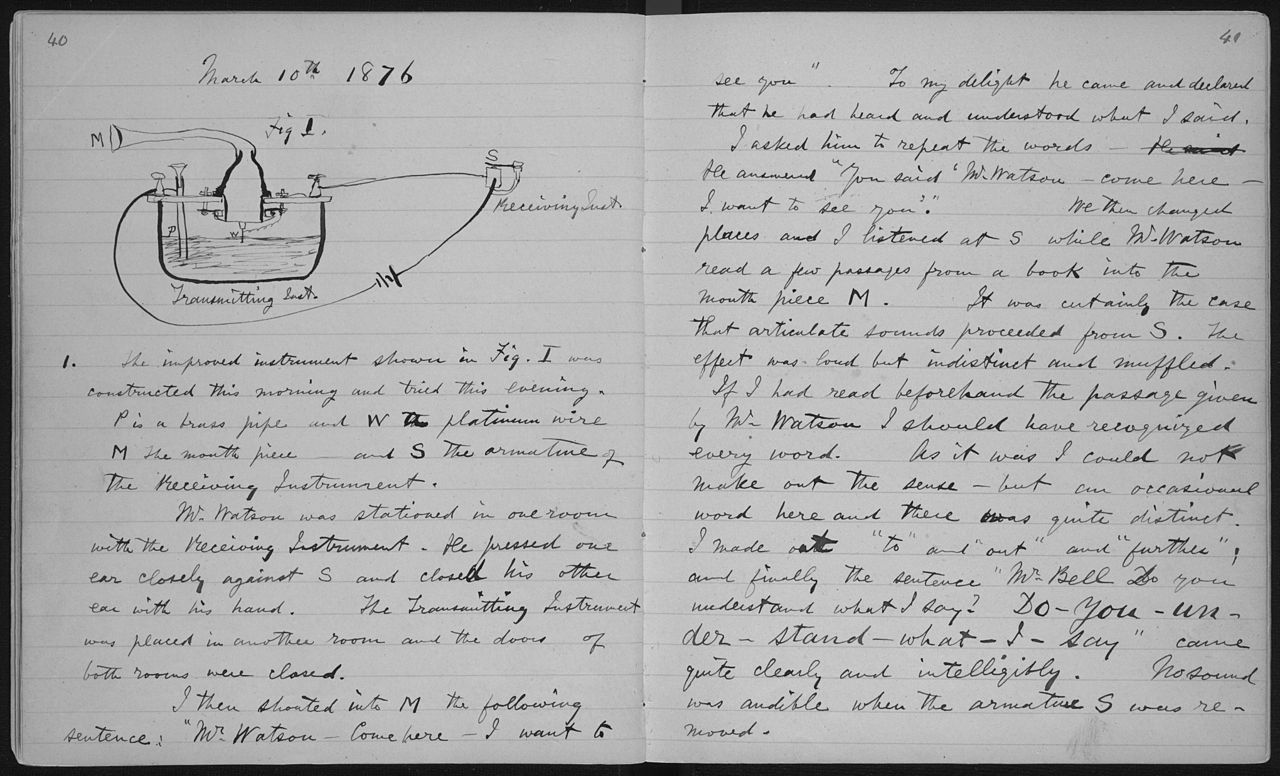 40
March 10th 1876
Fig I.
M
S
Receiving Inst.
P
W
Transmitting Inst.
1. The improved instrument shown in Fig. I was
constructed this morning and tried this evening.
P is a brass pipe and W the platinum wire
M the mouth piece — and S the armature of
the Receiving Instrument.
Mr. Watson was stationed in one room
with the Receiving Instrument. He pressed one
ear closely against S and closed his other
ear with his hand. The Transmitting Instrument
was placed in another room and the doors of
both rooms were closed.
I then shouted into M the following
sentence: "Mr. Watson — Come here — I want to
41
see you". To my delight he came and declared
that he had heard and understood what I said.
I asked him to repeat the words —
He answered "You said 'Mr. Watson — come here —
I want to see you'." We then changed
places and I listened at S while Mr. Watson
read a few passages from a book into the
mouth piece M. It was certainly the case
that articulate sounds proceeded from S. The
effect was loud but indistinct and muffled.
If I had read beforehand the passage given
by Mr. Watson I should have recognized
every word. As it was I could not
make out the sense — but an occasional
word here and there was quite distinct.
I made out "to" and "out" and "further";
and finally the sentence "Mr. Bell Do you
understand what I say? Do – you – un –
der – stand – what – I – say" came
quite clearly and intelligibly. No sound
was audible when the armature S was re –
moved.